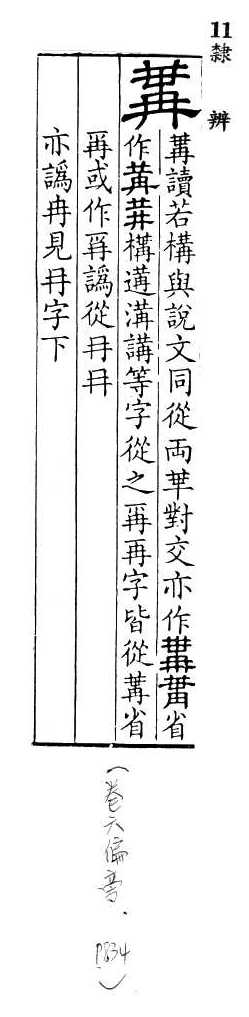 11 隸辨
冓
冓讀若構與說文同從兩𠦒對交亦作省
作構遘溝講等字從之爯再字皆從冓省
爯或作譌從冄冄
亦譌冉見冄字下
(卷六偏旁、P834)